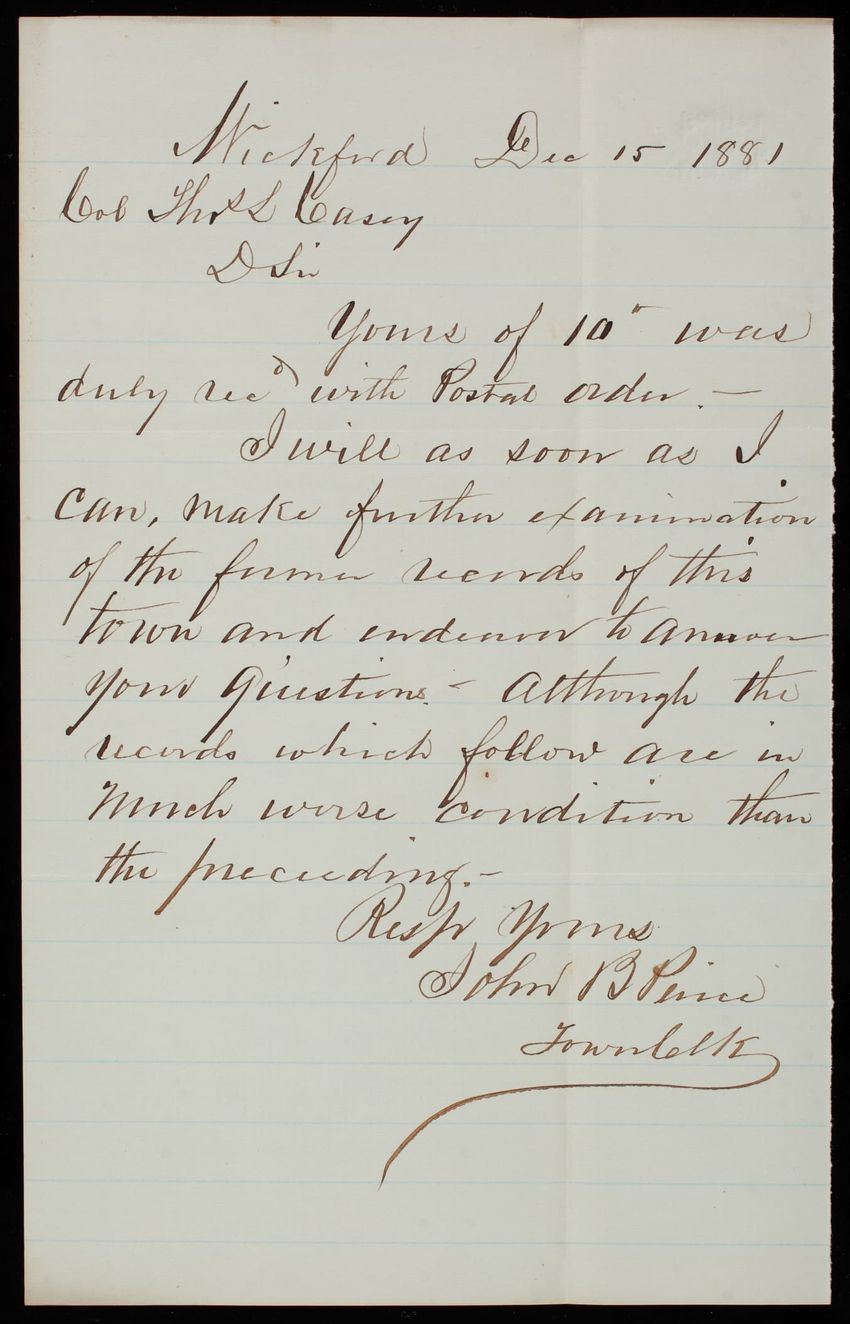 Wickford Dec 15 1881
Col Thos L Casey
D Sir
Yours of 10" was
duly recd with Postal order. —
I will as soon as I
can, make further examination
of the former records of this
town and endeavor to answer
your questions. - Although the
records which follow are in
much worse condition than
the preceeding. -
Resp Yours
John B Peirce
Town Clk